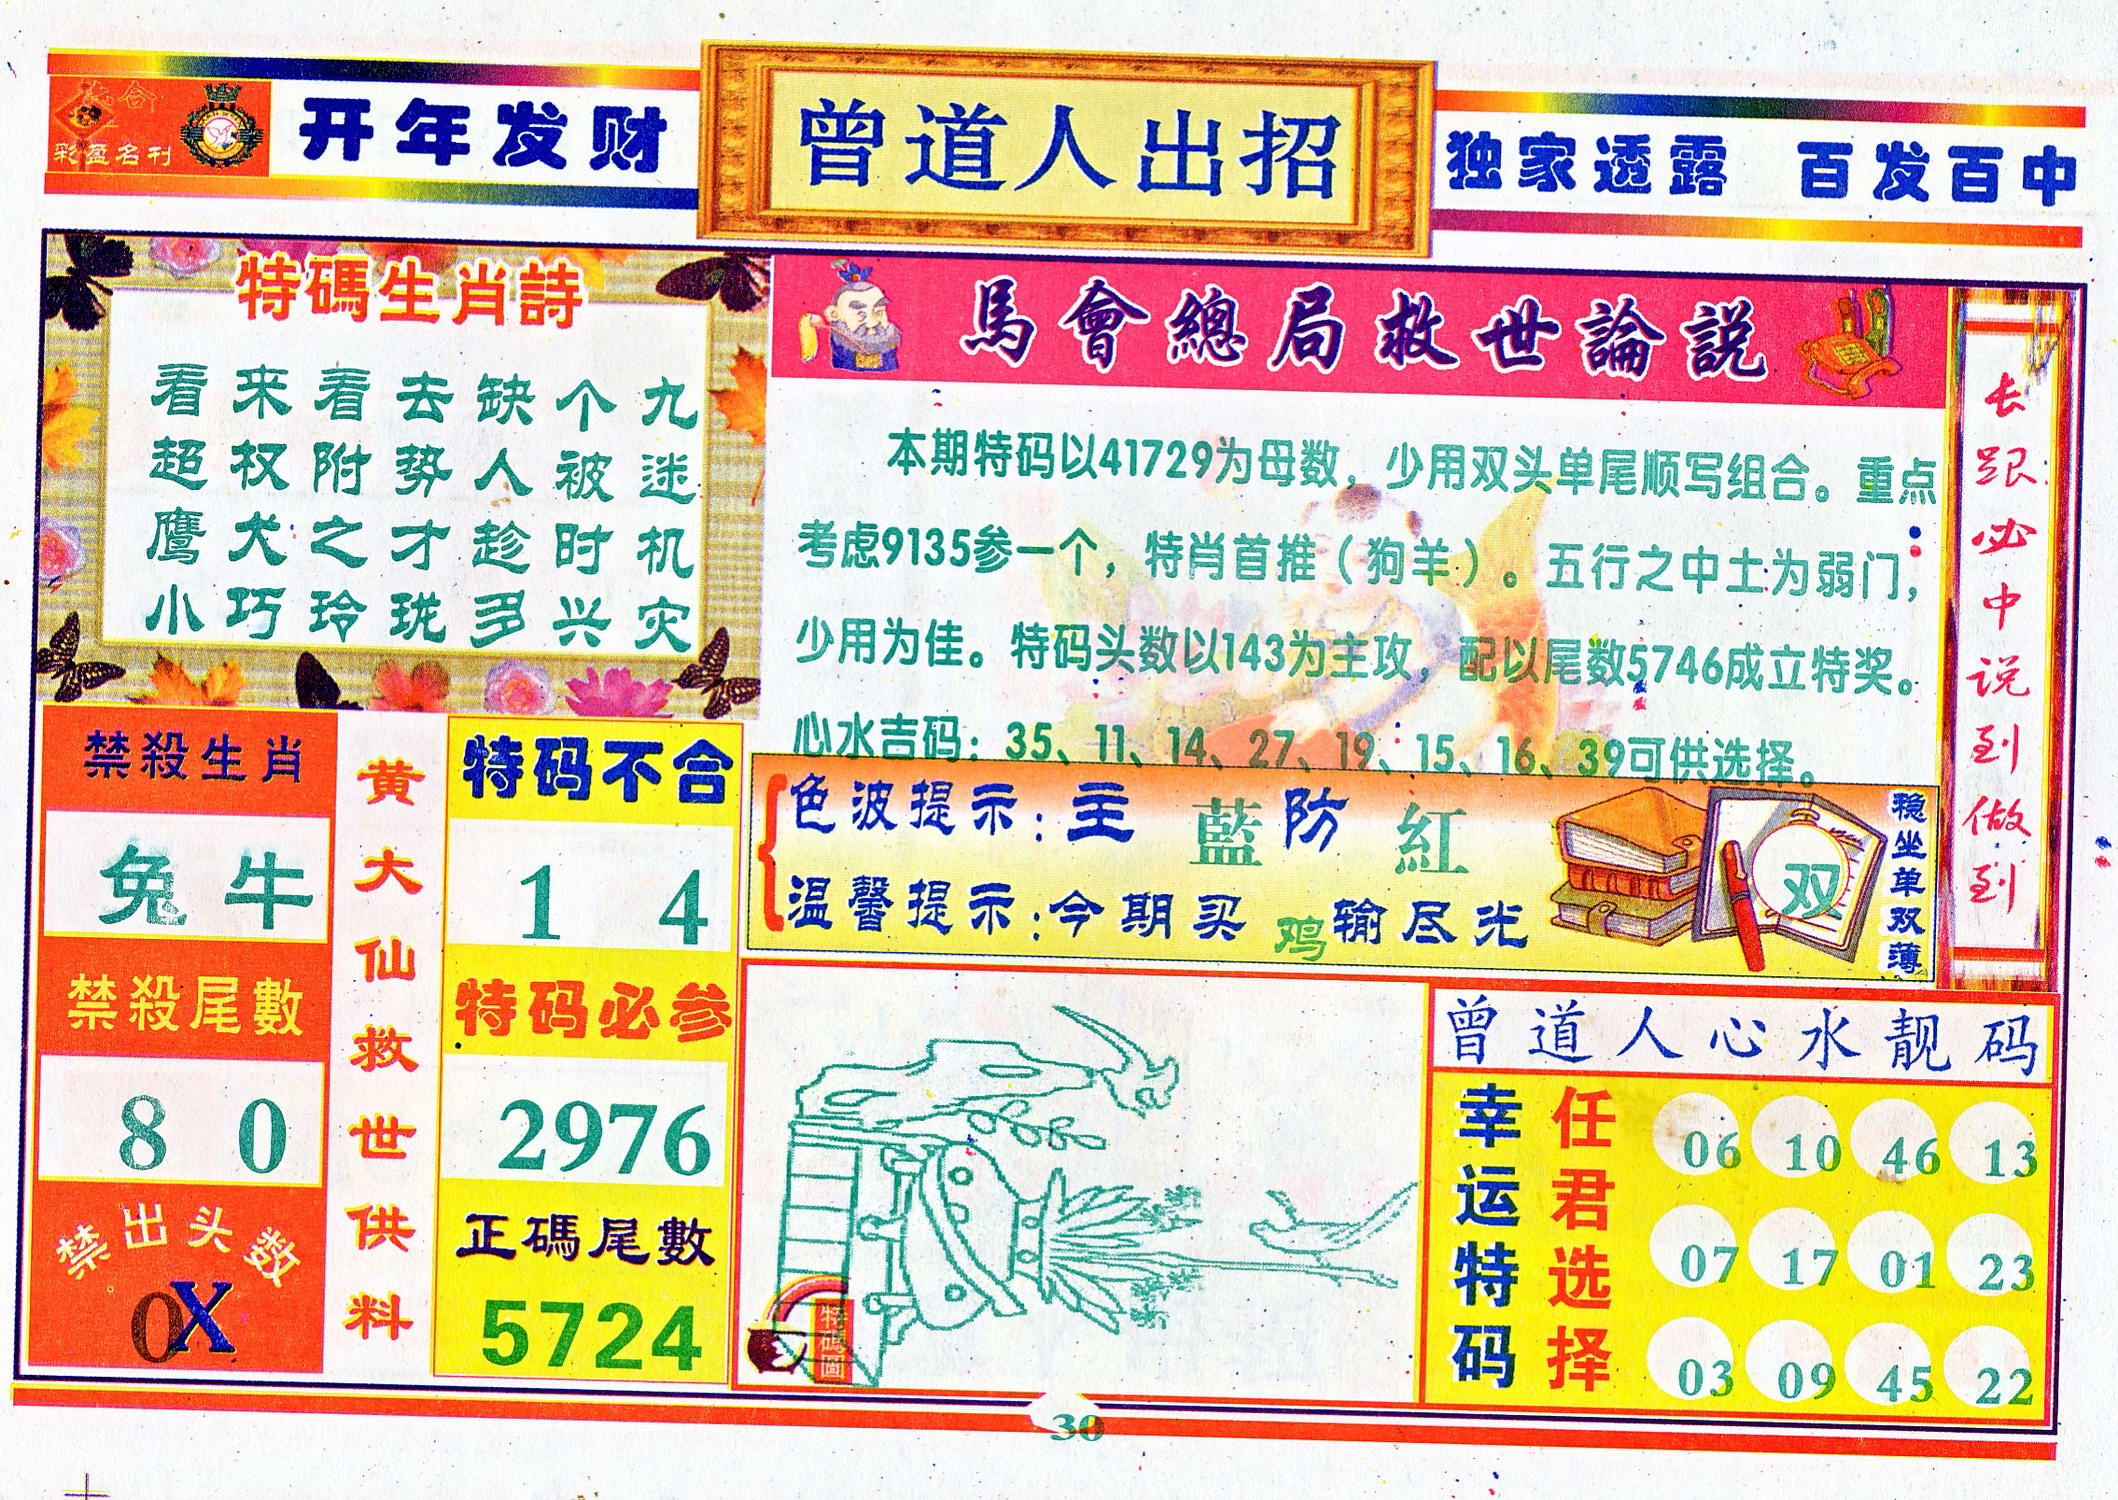 彩盈名刊
开年发财
曾道人出招
独家透露 百发百中
特碼生肖詩
看来看去缺个九
超权附势人被迷
鹰犬之才趁时机
小巧玲珑多兴灾
馬會總局救世論説
本期特码以41729为母数，少用双头单尾顺写组合。重点
考虑9135参一个，特肖首推（狗羊）。五行之中土为弱门，
少用为佳。特码头数以143为主攻，配以尾数5746成立特奖。
心水吉码：35、11、14、27、19、15、16、39可供选择。
长跟必中说到做到
禁殺生肖
兔 牛
禁殺尾數
8 0
禁出头数
0X
黄大仙救世供料
特码不合
1 4
特码必参
2976
正碼尾數
5724
色波提示：主藍防紅
温馨提示：今期买鸡输尽光
双
稳坐单双薄
特碼圖
曾道人心水靓码
幸运特码
任君选择
06 10 46 13
07 17 01 23
03 09 45 22
30